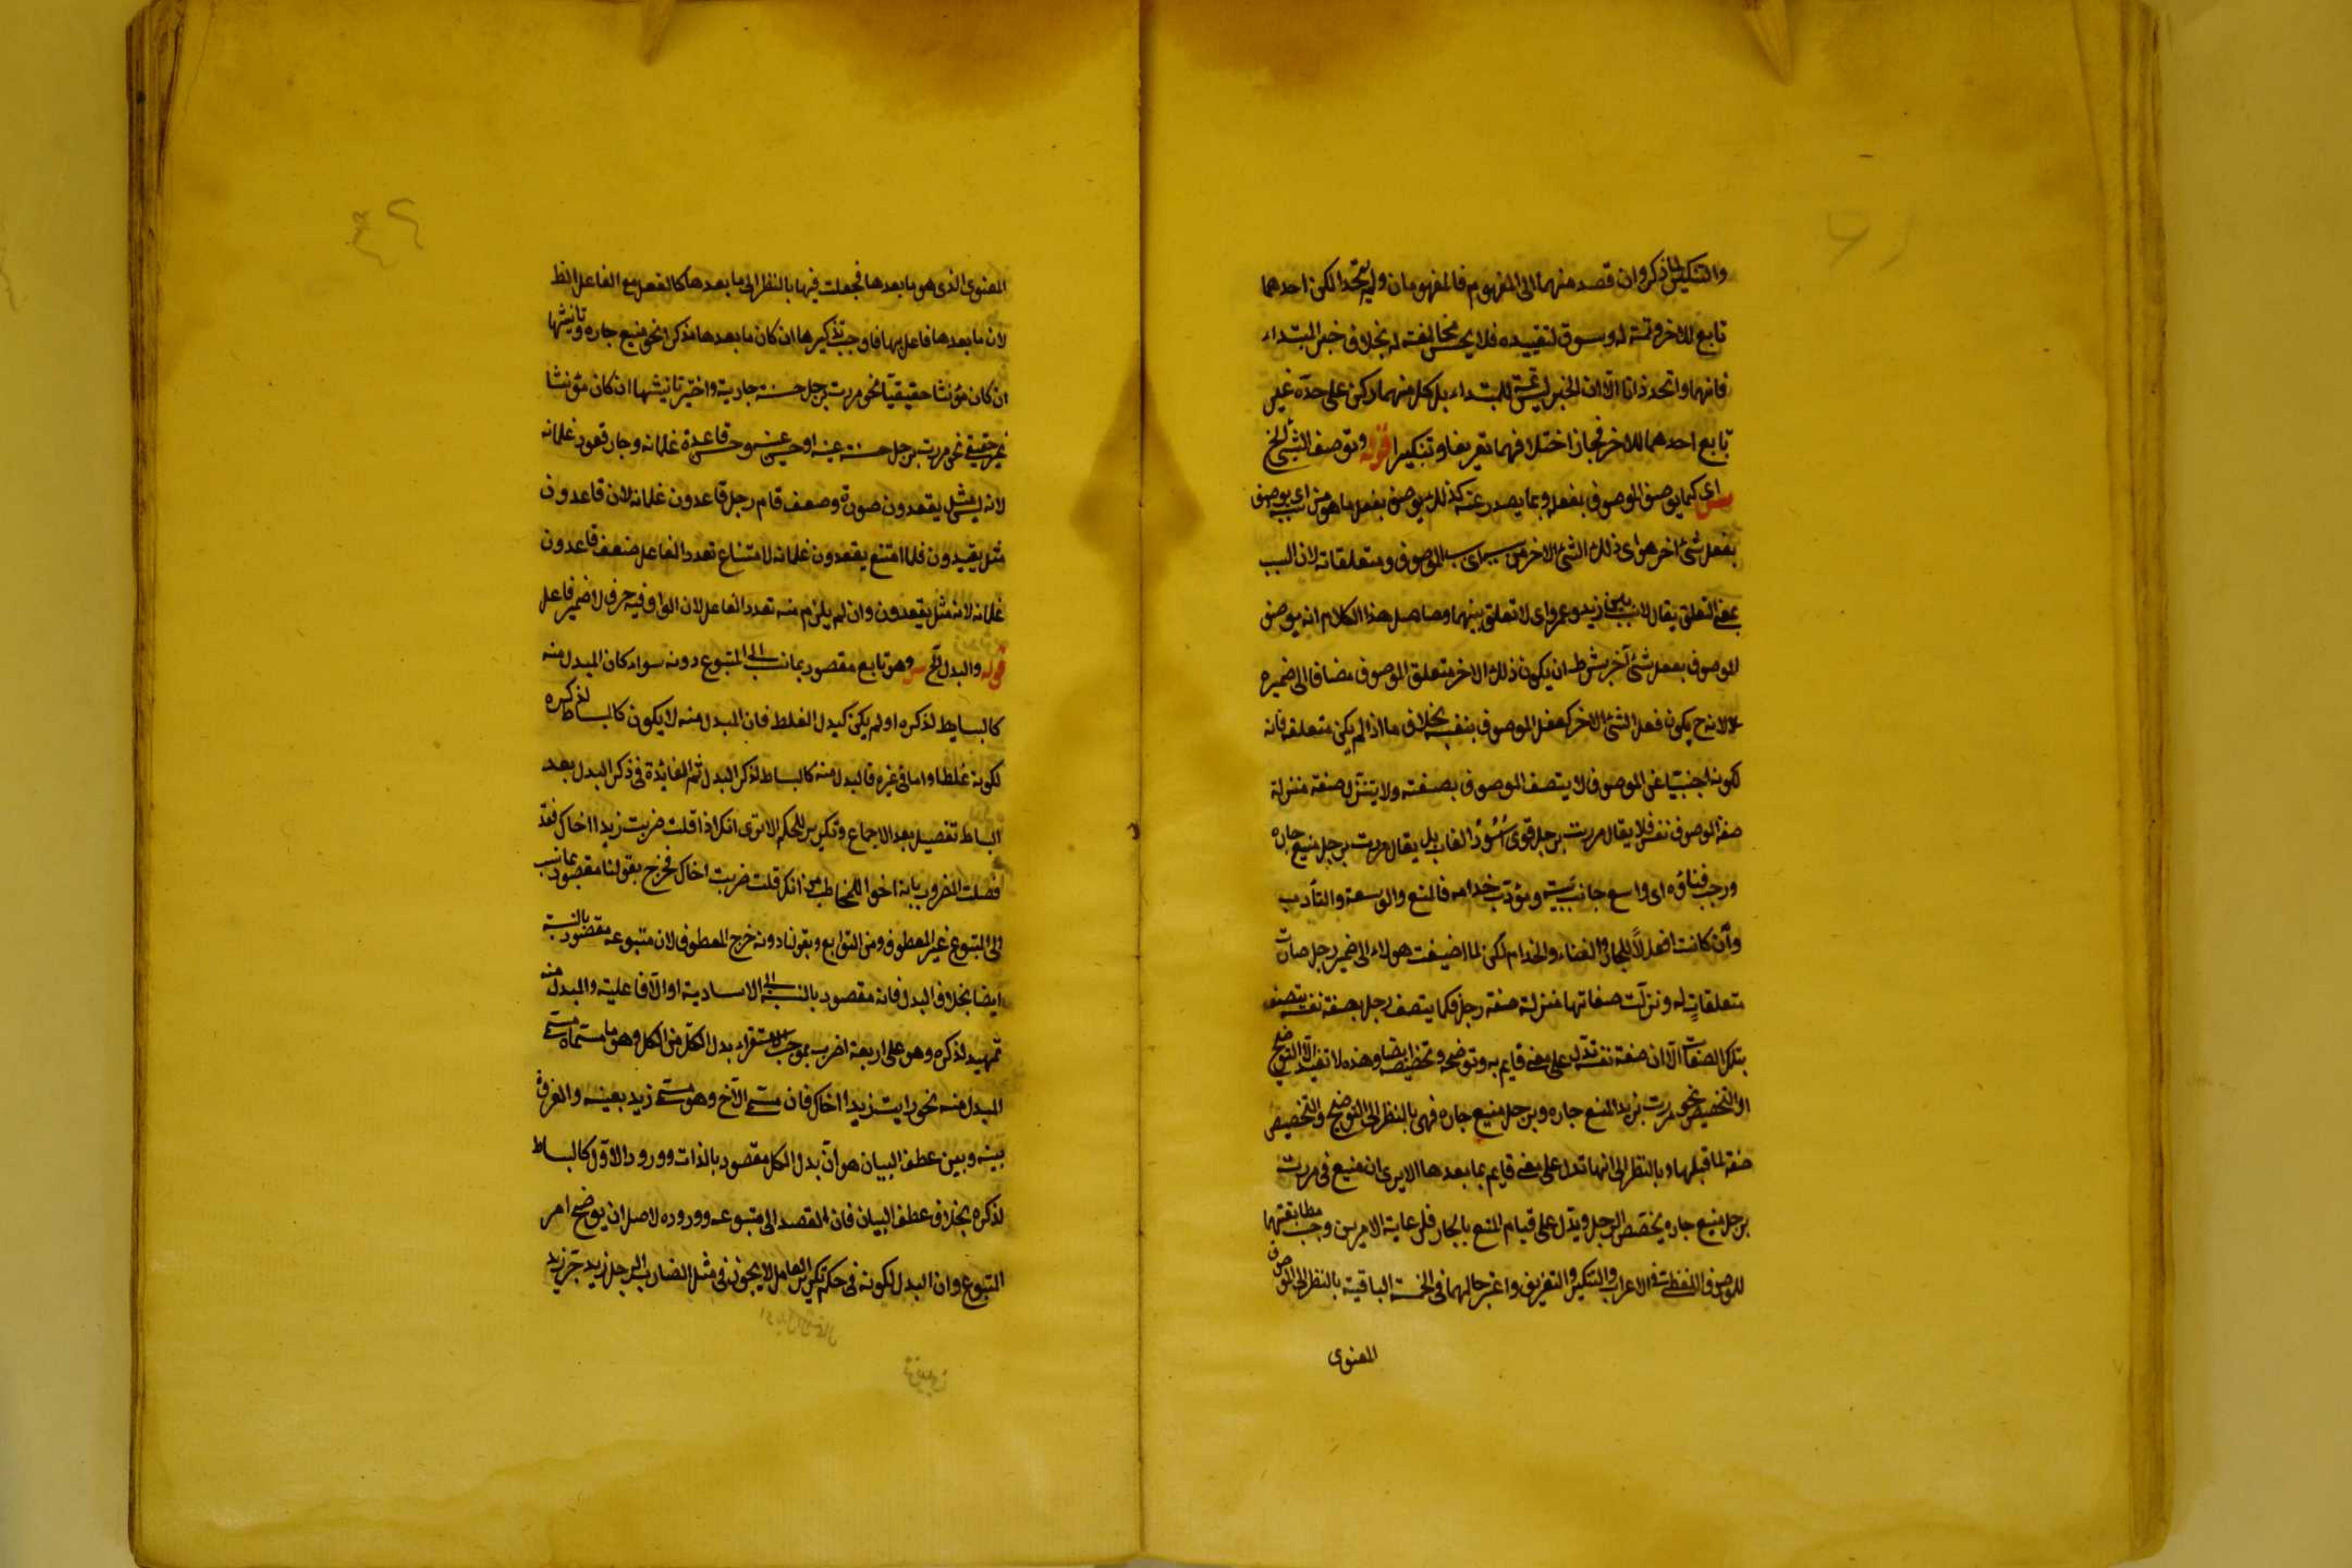 والتنكير لما ذكر وان قصد منهما الى المفهوم فالمفهومان وان لم يتحدا لكن احدهما
تابع للاخر وتتمة له ومسوق لتقييده فلا يحسن مخالفته له بخلاف خبر المبتداء
فانهما وان اتحد ذاتا الا ان الخبر ليس تتمة للمبتداء بل كل منهما ركن على حدّه غير
تابع احدهما للاخر فجاز اختلافهما تعريفا وتنكيرا قوله وتوصف الشئ الخ
ش اى كما يوصف الموصوف بفعله وبما يصدر عنه كذلك يوصف بفعل ما هو من سببه اى يوصف
بفعل شئ اخر هو اى ذلك الشئ الاخر من سبب اى سبب الموصوف ومتعلقاته لان السبب
بمعنى التعلق يقال لا سبب بين زيد وعمرو اى لا تعلق بينهما وحاصل هذا الكلام انه يوصف
الموصوف بفعل شئ آخر بشرط ان يكون ذلك الاخر متعلق الموصوف مضافا الى ضميره
لانه ح يكون فعل الشئ الاخر كفعل الموصوف بنفسه بخلاف ما اذا لم يكن متعلقه فانه
لكونه اجنبيا عن الموصوف لا يتصف الموصوف بصفته ولا يتنزل صفته منزلة
صفة الموصوف نفسه فلا يقال مررت برجل قوى اُسُودُ الغاب بل يقال مررت برجل منيع جاره
ورحب فناؤه اى واسع جانب بيته ومؤدّب خدامه فالمنع والوسعة والتأدب
وأن كانت افعلاً للجار والفناء والخدام لكن لما اضيفت هولاء الى ضمير رجل صارت
متعلقاتٍ له ونزلت صفاتها منزلة صفته رجل فكما يتصف رجل بصفة نفسه يتصف
بتلك الصفات الا ان صفة نفسه تدل على معنى قايم به وتوضحه وتخصيصه ايضا وهذه لا تفيد الا التوضيح
او التخصيص نحو مررت بزيد المنيع جاره وبرجل منيع جاره فهى بالنظر الى التوضيح والتخصيص
صفة لما قبلها وبالنظر الى انها تدل على معنى قايم بما بعدها الا يرى ان منيع فى مررت
برجل منيع جاره يخصّص الرجل ويدل على قيام المنع بالجار فلرعاية الامرين وجب مطابقتها
للموصوف اللفظى فى الاعراب والتنكير والتعريف واعتبر حالهما فى الخمسة الباقية بالنظر الى الموصوف
المعنوى
المعنوى الذى هو ما بعدها فجعلت فيها بالنظر الى ما بعدها كالفعل مع الفاعل الظ
لان ما بعدها فاعل بها فاوجب تذكيرها ان كان ما بعدها مذكرا نحو منيع جاره وتانيثها
ان كان مؤنثا حقيقيا نحو مررت برجل حسنة جاريته واختير تانيثها ان كان مؤنثا
غير حقيقى نحو مررت برجل حسنة عينه او حسن عينه وحسن قاعدة غلمانه وجاز قعود غلمانه
لانه ليس مثل يقعدون صورة وضعف قام رجل قاعدون غلمانه لان قاعدون
مثل يقعدون فلما امتنع يقعدون غلمانه لامتناع تعدد الفاعل ضعف قاعدون
غلمانه لانه مثل يقعدون وان لم يلزم منه تعدد الفاعل لان الواو فيه حرف لا ضمير فاعل
قوله والبدل الخ ش وهو تابع مقصود بما نسب الى المتبوع دونه سواء كان المبدل منه
كالبساط لذكره او لم يكن كبدل الغلط فان المبدل منه لا يكون كالبساط لذكره
لكونه غلطا واما فى غيره فالمبدل منه كالبساط لذكر البدل ثم الفائدة فى ذكر البدل بعد
البساط تفصيل بعد الاجماع وتكرير للحكم الا ترى انك اذا قلت ضربت زيدا اخاك فقد
فصلت المضروب بانه اخو المخاطب من انك قلت ضربت اخاك فخرج بقولنا مقصود بما نسب
الى المتبوع غير المعطوف ومن التوابع وبقولنا دونه خرج المعطوف لان متبوعه مقصود بالنسبة
ايضا بخلاف البدل فانه مقصود بالنسبة الى الاسادية او الآفاعلية والمبدل منه
تمهيد لذكره وهو على اربعة اضرب بموجب الاستقراء بدل الكل من الكل وهو ما مسماه مسمى
المبدل منه نحو رايت زيدا اخاك فان مسمى الآخ وهو مسمى زيد بعينه والفرق
بينه وبين عطف البيان هو أن بدل الكل مقصود بالذات وورود الاول كالبساط
لذكره بخلاف عطف البيان فان القصد الى متبوعه ووروده لاصل ان يوضح امر
المتبوع وان البدل لكونه فى حكم تكرير العامل لا يجوز فى مثل الضارب الرجل زيد جرّ زيد